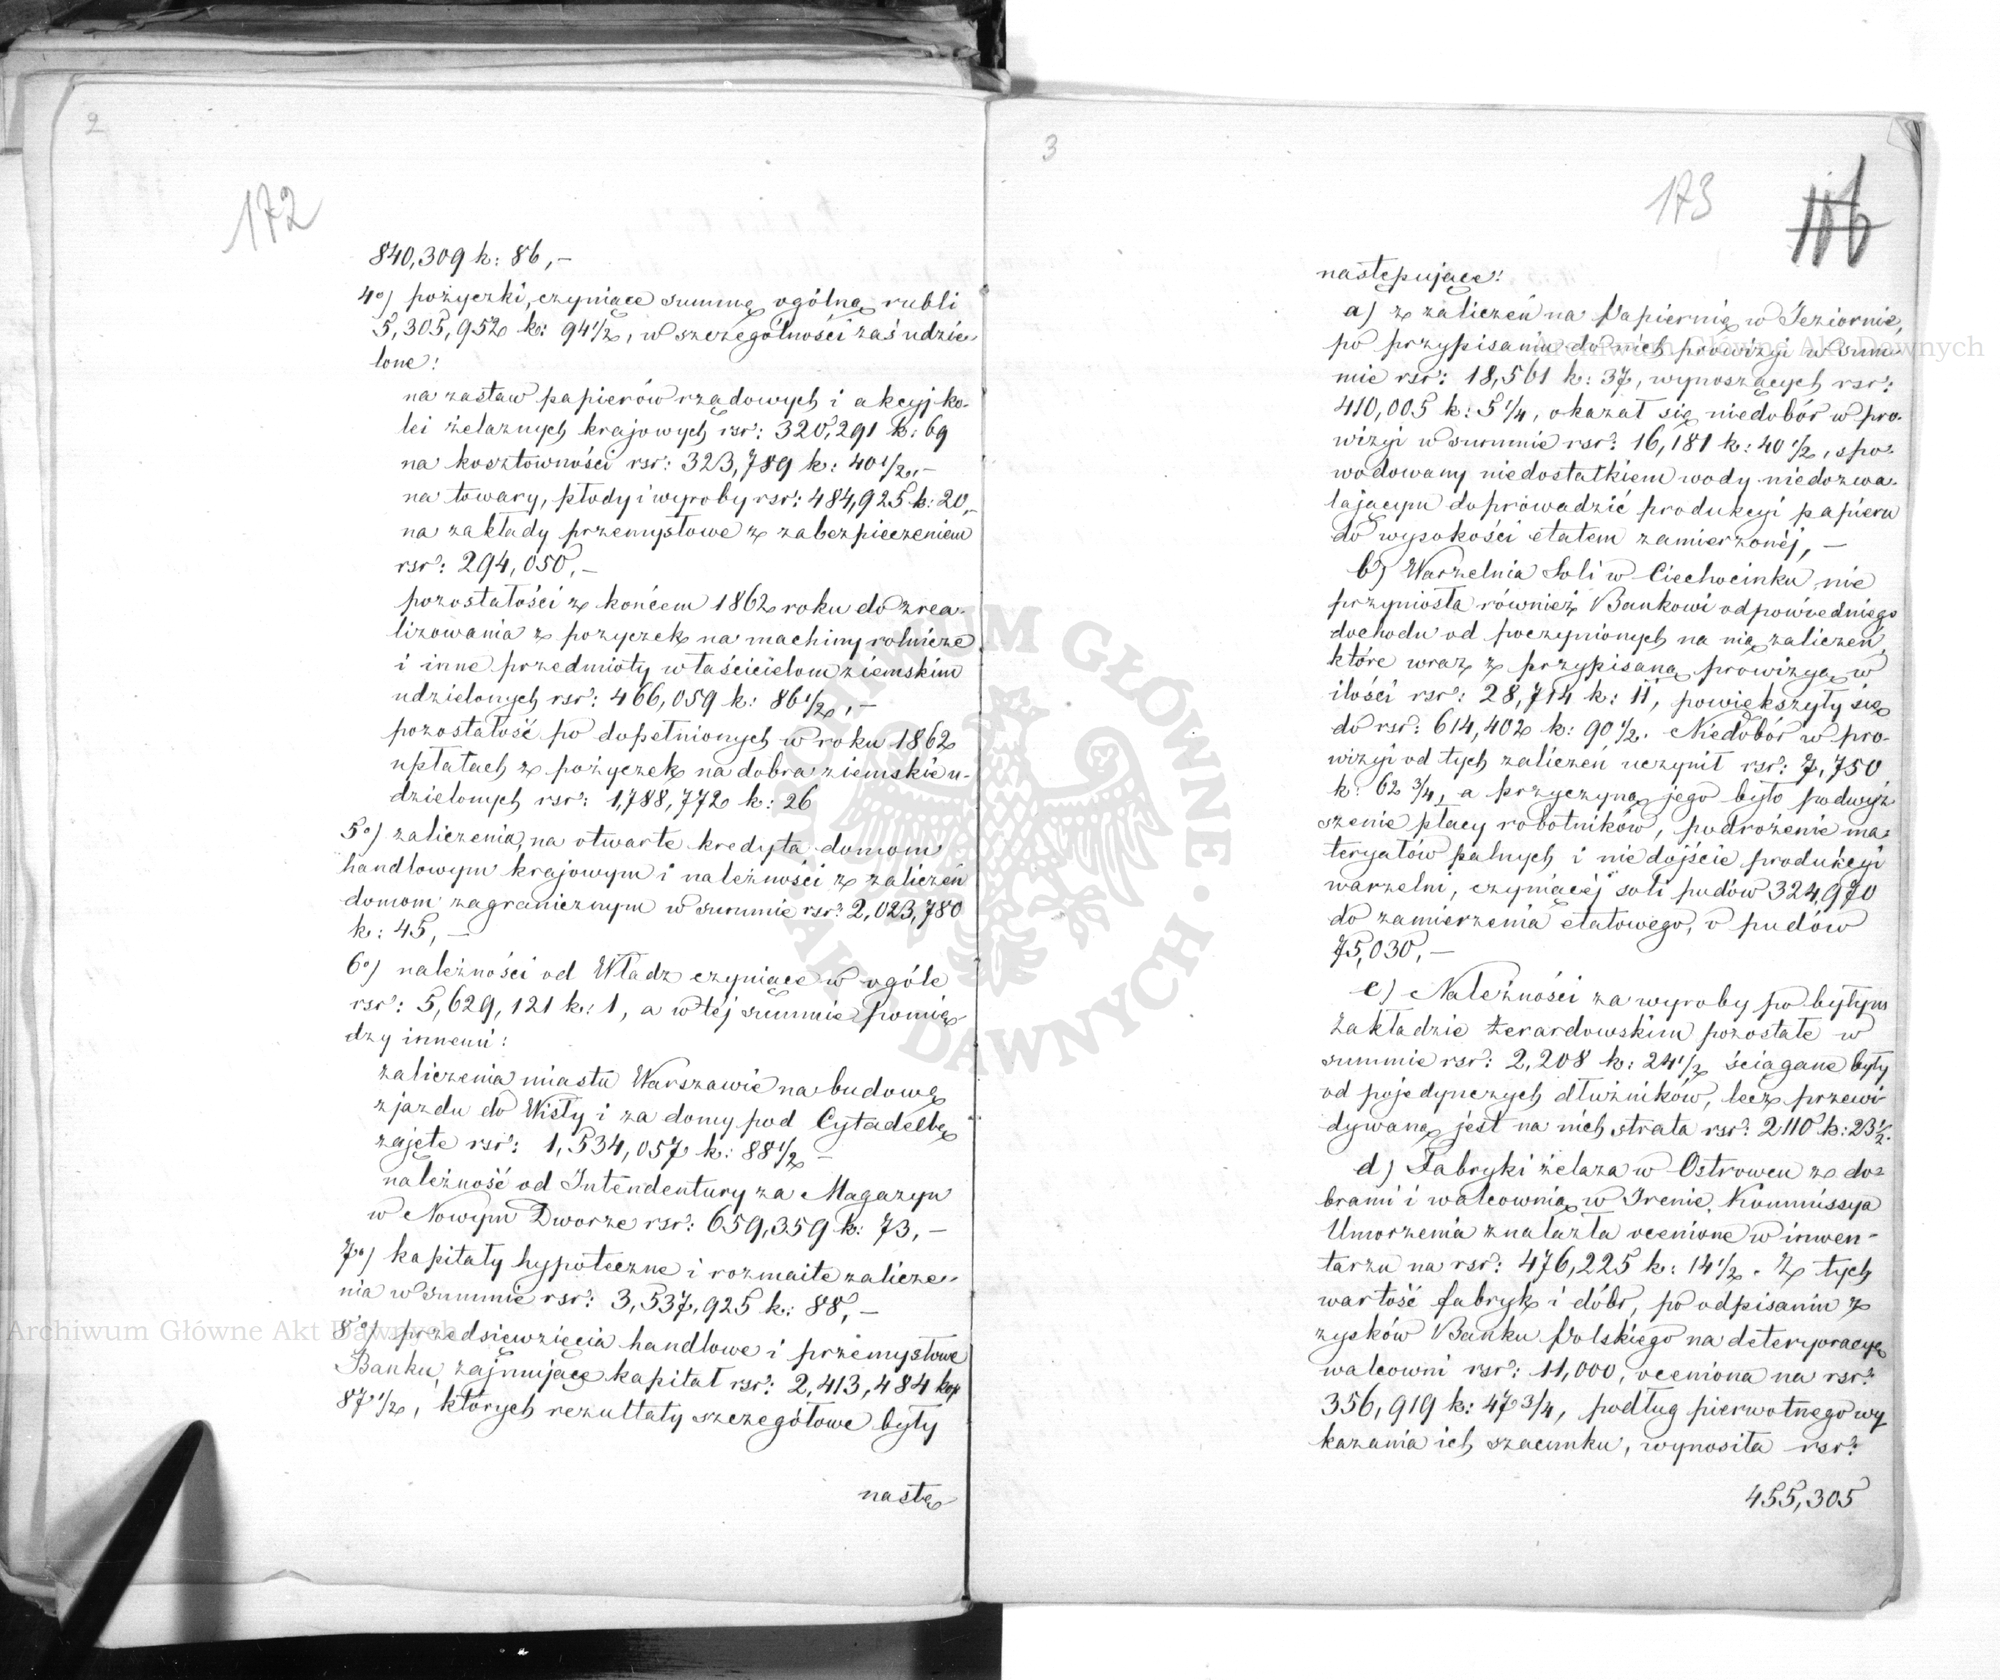 2
172
840,309 k: 86,–
4o) pożyczki, czyniące summę ogólną rubli
5,305,952 k: 94 1/2, w szczególności zaś udzie-
lone:
na zastaw papierów rządowych i akcyj ko-
lei żelaznych krajowych rsr: 320,291 k: 69
na kosztowności rsr: 323,789 k: 40 1/2,–
na towary, płody i wyroby rsr: 484,925 k: 20,–
na zakłady przemysłowe z zabezpieczeniem
rsr: 294,050,–
pozostałości z końcem 1862 roku do zrea-
lizowania z pożyczek na machiny rolnicze
i inne przedmioty właścicielom ziemskim
udzielonych rsr: 466,059 k: 86 1/2,–
pozostałość po dopełnionych w roku 1862
upłatach z pożyczek na dobra ziemskie u-
dzielonych rsr: 1,788,772 k: 26
5o) zaliczenia, na otwarte kredyta domom
handlowym krajowym i należności z zaliczeń
domom zagranicznym w summie rsr: 2,023,780
k: 45,–
6o) należności od Władz czyniące w ogóle
rsr: 5,629,121 k: 1, a w tej summie pomię-
dzy innemi:
zaliczenia miastu Warszawie na budowę
zjazdu do Wisły i za domy pod Cytadellę
zajęte rsr: 1,534,057 k: 88 1/2 –
należność od Intendentury za Magazyn
w Nowym Dworze rsr: 659,359 k: 73,–
7o) kapitały hypoteczne i rozmaite zalicze-
nia w summie rsr: 3,537,925 k: 88,–
8o) przedsięwzięcia handlowe i przemysłowe
Banku, zajmujące kapitał rsr: 2,413,484 kop
87 1/2, których rezultaty szczegółowe były
nastę
3
173
106
następujące:
a) z zaliczeń na Papiernię w Jeziornie,
po przypisaniu do nich prowizyi w sum-
mie rsr: 18,561 k: 37, wynoszących rsr:
410,005 k: 5 1/4, okazał się niedobór w pro-
wizyi w summie rsr: 16,181 k: 40 1/2, spo-
wodowany niedostatkiem wody niedozwa-
lającym doprowadzić produkcyi papieru
do wysokości etatem zamierzonej,–
b) Warzelnia Soli w Ciechocinku nie
przyniosła również Bankowi odpowiedniego
dochodu od poczynionych na nią zaliczeń,
które wraz z przypisaną prowizyą w
ilości rsr: 28,714 k: 11, powiększyły się
do rsr: 614,402 k: 90 1/2. Niedobór w pro-
wizyi od tych zaliczeń uczynił rsr: 7,750
k: 62 3/4, a przyczyną jego było podwyż
szenie płacy robotników, podrożenie ma-
teryałów palnych i niedojście produkcyi
warzelni, czyniącej soli pudów 324,970
do zamierzenia etatowego, o pudów
75,030,–
c) Należności za wyroby po byłym
Zakładzie Żerardowskim pozostałe w
summie rsr: 2,208 k: 24 1/2 ściągane były
od pojedynczych dłużników, lecz przewi
dywaną jest na nich strata rsr: 2110 k: 23 1/2.
d) Fabryki żelaza w Ostrowcu z do-
brami i walcownią w Irenie, Kommissya
Umorzenia znalazła ocenione w inwen-
tarzu na rsr: 476,225 k: 14 1/2. Z tych
wartość fabryk i dóbr, po odpisaniu z
zysków Banku Polskiego na deterioracyę
walcowni rsr: 11,000, oceniona na rsr:
356,919 k: 47 3/4, podług pierwotnego wy
kazania ich szacunku, wynosiła rsr:
455,305
Archiwum Główne Akt Dawnych
Archiwum Główne Akt Dawnych
ARCHIWUM GŁÓWNE AKT DAWNYCH